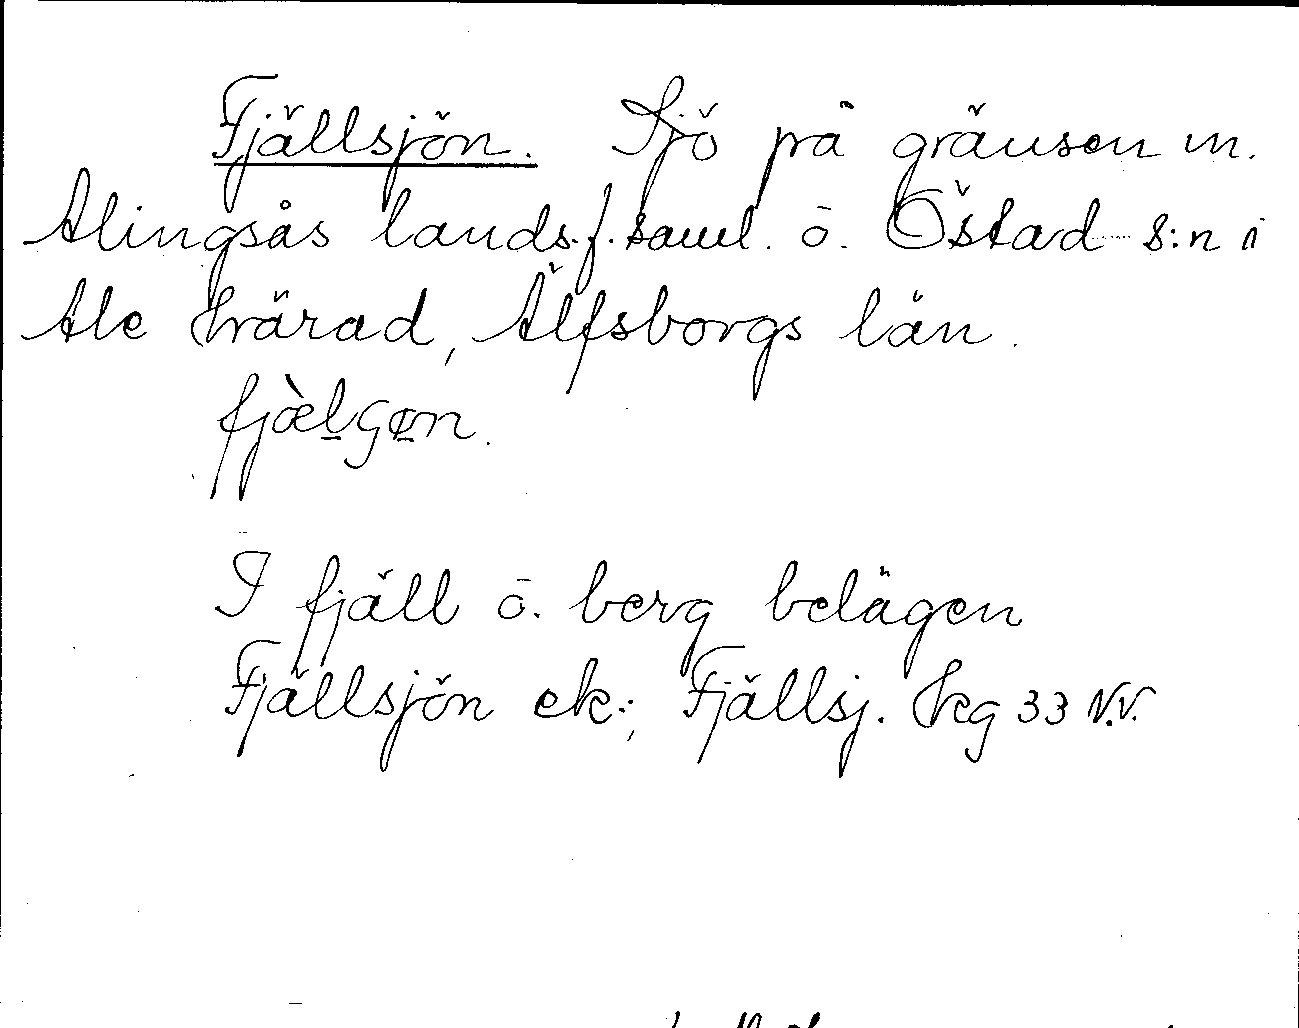 Fjällsjön. Sjö på gränsen m.
Alingsås lands.f.saml. o. Östad s:n i
Ale härad, Älfsborgs län.
fjæ̀lɕøn.
I fjäll o. berg belägen
Fjällsjön ek.; Fjällsj. Hkg 33 N.V.